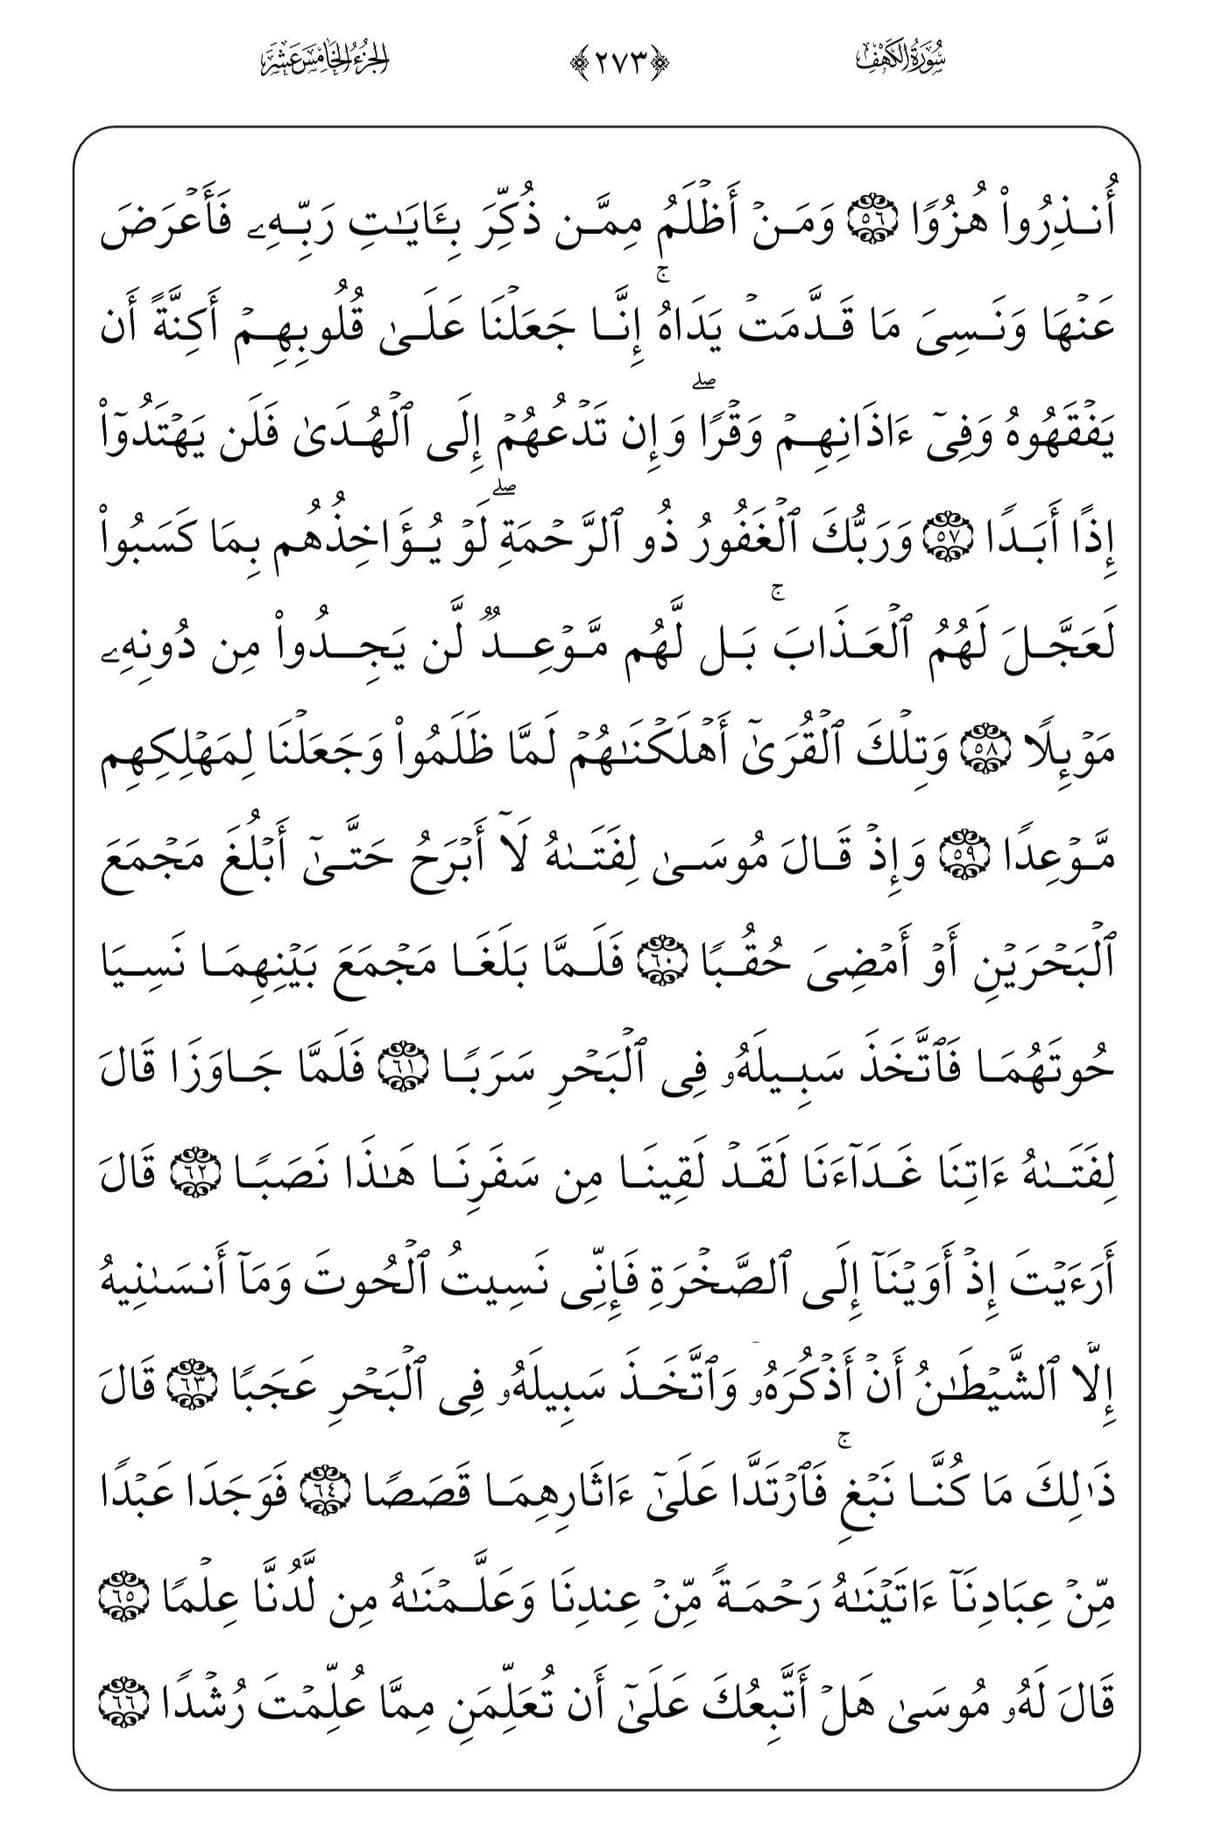 سُورَةُ الكَهْفِ ﴿٢٧٣﴾ الجُزْءُ الخَامِسَ عَشَرَ
أُنذِرُواْ هُزُوٗا ٥٦ وَمَنۡ أَظۡلَمُ مِمَّن ذُكِّرَ بِـَٔايَٰتِ رَبِّهِۦ فَأَعۡرَضَ
عَنۡهَا وَنَسِيَ مَا قَدَّمَتۡ يَدَاهُۚ إِنَّا جَعَلۡنَا عَلَىٰ قُلُوبِهِمۡ أَكِنَّةً أَن
يَفۡقَهُوهُ وَفِيٓ ءَاذَانِهِمۡ وَقۡرٗاۖ وَإِن تَدۡعُهُمۡ إِلَى ٱلۡهُدَىٰ فَلَن يَهۡتَدُوٓاْ
إِذًا أَبَدٗا ٥٧ وَرَبُّكَ ٱلۡغَفُورُ ذُو ٱلرَّحۡمَةِۖ لَوۡ يُؤَاخِذُهُم بِمَا كَسَبُواْ
لَعَجَّلَ لَهُمُ ٱلۡعَذَابَۚ بَل لَّهُم مَّوۡعِدٞ لَّن يَجِدُواْ مِن دُونِهِۦ
مَوۡئِلٗا ٥٨ وَتِلۡكَ ٱلۡقُرَىٰٓ أَهۡلَكۡنَٰهُمۡ لَمَّا ظَلَمُواْ وَجَعَلۡنَا لِمَهۡلِكِهِم
مَّوۡعِدٗا ٥٩ وَإِذۡ قَالَ مُوسَىٰ لِفَتَىٰهُ لَآ أَبۡرَحُ حَتَّىٰٓ أَبۡلُغَ مَجۡمَعَ
ٱلۡبَحۡرَيۡنِ أَوۡ أَمۡضِيَ حُقُبٗا ٦٠ فَلَمَّا بَلَغَا مَجۡمَعَ بَيۡنِهِمَا نَسِيَا
حُوتَهُمَا فَٱتَّخَذَ سَبِيلَهُۥ فِي ٱلۡبَحۡرِ سَرَبٗا ٦١ فَلَمَّا جَاوَزَا قَالَ
لِفَتَىٰهُ ءَاتِنَا غَدَآءَنَا لَقَدۡ لَقِينَا مِن سَفَرِنَا هَٰذَا نَصَبٗا ٦٢ قَالَ
أَرَءَيۡتَ إِذۡ أَوَيۡنَآ إِلَى ٱلصَّخۡرَةِ فَإِنِّي نَسِيتُ ٱلۡحُوتَ وَمَآ أَنسَىٰنِيهُ
إِلَّا ٱلشَّيۡطَٰنُ أَنۡ أَذۡكُرَهُۥۚ وَٱتَّخَذَ سَبِيلَهُۥ فِي ٱلۡبَحۡرِ عَجَبٗا ٦٣ قَالَ
ذَٰلِكَ مَا كُنَّا نَبۡغِۚ فَٱرۡتَدَّا عَلَىٰٓ ءَاثَارِهِمَا قَصَصٗا ٦٤ فَوَجَدَا عَبۡدٗا
مِّنۡ عِبَادِنَآ ءَاتَيۡنَٰهُ رَحۡمَةٗ مِّنۡ عِندِنَا وَعَلَّمۡنَٰهُ مِن لَّدُنَّا عِلۡمٗا ٦٥
قَالَ لَهُۥ مُوسَىٰ هَلۡ أَتَّبِعُكَ عَلَىٰٓ أَن تُعَلِّمَنِ مِمَّا عُلِّمۡتَ رُشۡدٗا ٦٦